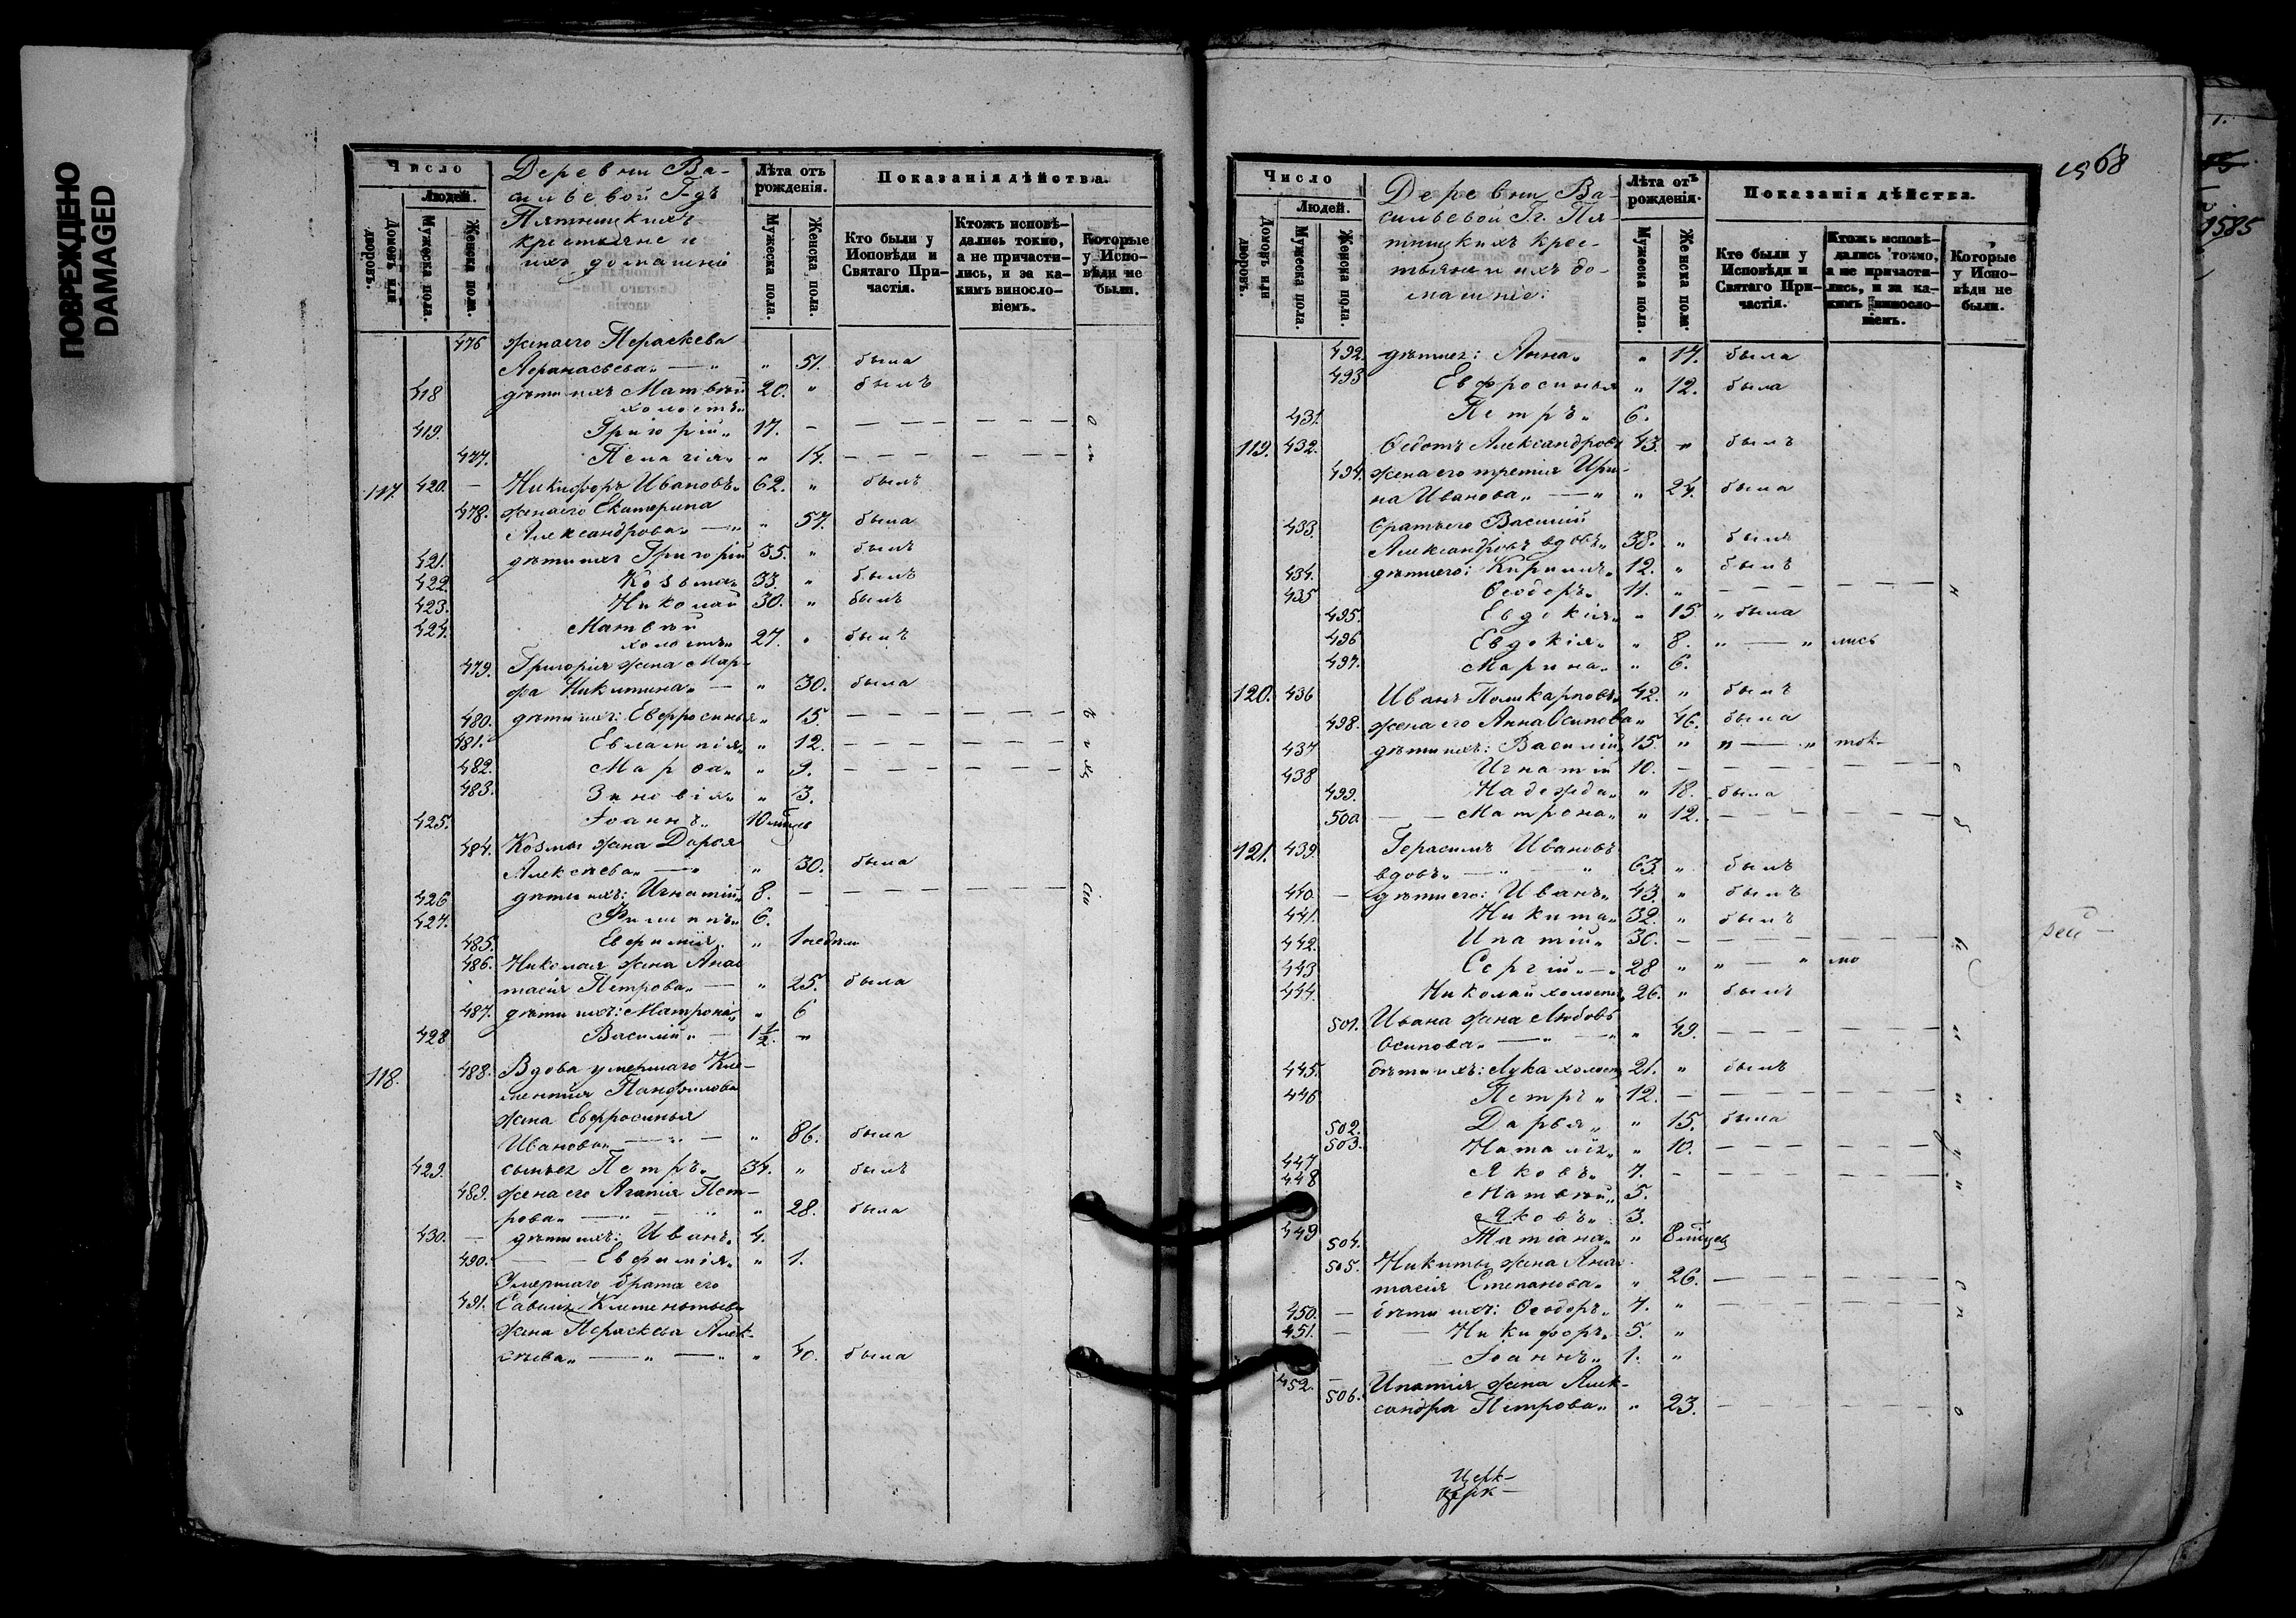 ПОВРЕЖДЕНО
DAMAGED
Число
Людей.
Домовъ или дворовъ.
Мужеска пола.
Женска пола.
Деревни Ва-
сильевой Г-дъ
Пятницкихъ
крестьяне и
ихъ домашніе
Лѣта отъ рожденія.
Мужеска пола.
Женска пола.
Показанія дѣйства.
Кто были у Исповѣди и Святаго При-частія.
Ктожъ исповѣ-дались токмо, а не причасти-лись, и за ка-кимъ винослo-віемъ.
Которые у Испо-вѣди не были.
476 жена его Параскева
Афанасьева „ — „ „ 51. была
418 дѣти ихъ Матвѣй 20. „ былъ
холостъ „
419. Григорій „ 17. – — — — — — — о
477. Пелагія „ „ 14. — — — — — — —
117. 420. — Никифоръ Ивановъ „ 62. „ былъ
478. жена его Екатерина
Александрова „ — „ „ 57. была
421. дѣти ихъ Григорій 35. „ былъ
422. Козьма „ 33. „ былъ
423. Николай 30. „ былъ
424. Матвѣй
холостъ „ 27. „ былъ
479. Григорія жена Мар-
фа Никитина „ — „ 30. была
480. дѣти ихъ: Евфросинья „ 15. — — — — — — —
481. Евлампія „ „ 12. — — — — — — —
482. Марфа „ „ 9. — — — — — — —
483. Зиновія „ „ 3.
425. Іоаннъ „ 10 мѣсяц
484. Козьмы жена Дарья
Алексѣева „ — „ „ 30. была
426 дѣти ихъ: Игнатій „ 8. – — — — — — —
427. Филиппъ „ 6.
485. Евфимія „ „ 1 недѣли
486. Николая жена Анас
тасія Петрова „ — „ 25. была
487. дѣти ихъ: Матрона „ „ 6
428 Василій „ — 1½. „
118. 488. Вдова умершаго Кле-
ментія Панфилова
жена Евфросинья
Иванова „ — „ — „ 86. была
429. сынъ ея Петръ „ 34. „ былъ
489. жена его Агапія Пет-
рова „ — „ — „ „ 28. была
430. — дѣти ихъ: Иванъ „ 4.
490. — — Евфимія „ „ 1.
Умершаго брата его
491. Савелія Клементьева
жена Параскева Алек-
сѣева „ — „ — „ „ 40. была
68
1585
Число
Людей.
Домовъ или дворовъ.
Мужеска пола.
Женска пола.
Деревни Ва-
сильевой Гг. Пя-
тницкихъ крес-
тьяне и ихъ до-
машніе:
Лѣта отъ рожденія.
Мужеска пола.
Женска пола.
Показанія дѣйства.
Кто были у Исповѣди и Святаго При-частія.
Ктожъ исповѣ-дались токмо, а не причасти-лись, и за ка-кимъ винослo-віемъ.
Которые у Испо-вѣди не были.
492. дѣти ея: Анна „ „ 17. была
493 Евфросинья „ 12. была
431. Петръ „ 6.
119. 432. Ѳедотъ Александровъ 43. „ былъ
494. жена его третія Ири-
на Иванова „ — „ „ 24. была
433. братъ его Василій
Александровъ вдовъ „ 38. „ былъ
434. дѣти его: Кириллъ „ 12. „ былъ
435 Ѳеодоръ „ 11. „ — — — — — н
495. Евдокія „ „ 15 „ была
496 Евдокія „ „ 8. „ — „ лись
497. Марина „ „ 6.
120. 436 Иванъ Поликарповъ „ 42. „ былъ
498. жена его Анна Осипова „ 46. была
437 дѣти ихъ: Василій „ 15. „ „ — „ ток-
438 Игнатій 10. – — — — — — с
499. Надежда „ „ 18. была
500 — — Матрона „ „ 12. — — — — — — б
121. 439. Герасимъ Ивановъ
вдовъ „ — „ — „ 63. „ былъ
440. — дѣти его: Иванъ „ 43. „ былъ
441. Никита „ 32. „ былъ
442. Ипатій „ 30. – — — — — —
443 Сергій „ — „ 28 „ „ — „ мо
444. Николай холостъ 26. „ былъ
501. Ивана жена Любовь
Осипова „ — „ — „ „ 49. — — — — — — и
445. дѣти ихъ: Лука холост 21. „ былъ
446 Петръ „ 12. – — — — — — и
502. Дарья „ „ 15. была
503. Наталія „ „ 10. — — — — — —
447 Яковъ „ 7. – — — — — — и
448 Матвѣй „ 5.
449 Яковъ „ 3.
504. Татіана „ „ 8 мѣсяц
505. Никиты жена Анас
тасія Степанова „ „ 26. — — — — — — с
450. — дѣти ихъ: Ѳеодоръ „ 7. „ — — — — — п
451. — — Никифоръ „ 5. „
452. — Іоаннъ „ 1. „
506. Ипатія жена Алек-
сандра Петрова „ „ 23. — — — — — — о
Церк-
Церк-